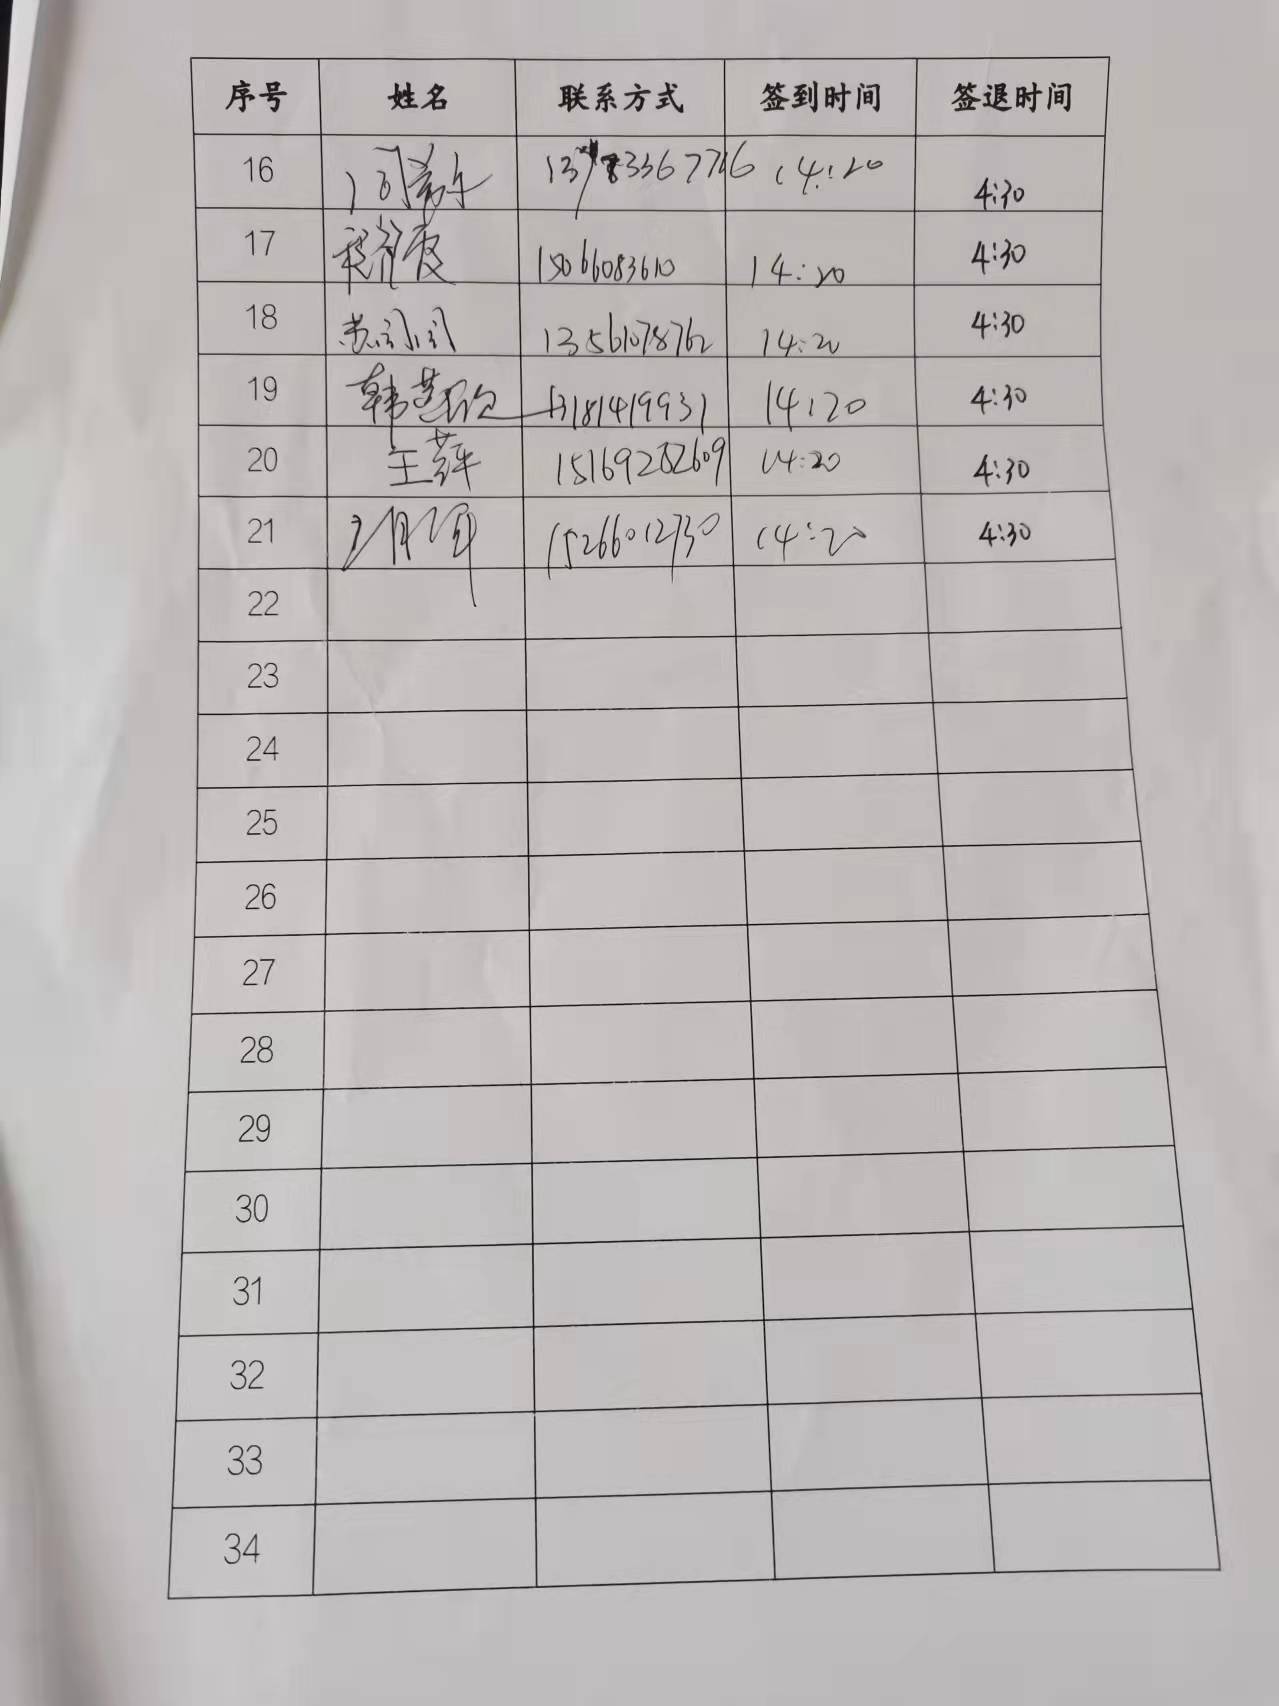 序号 姓名 联系方式 签到时间 签退时间
16 14:20 4:30
17 15066083610 14:20 4:30
18 13561078762 14:20 4:30
19 韩 13181419931 14:20 4:30
20 王萍 15169282609 14:20 4:30
21 15266012730 14:20 4:30
22
23
24
25
26
27
28
29
30
31
32
33
34